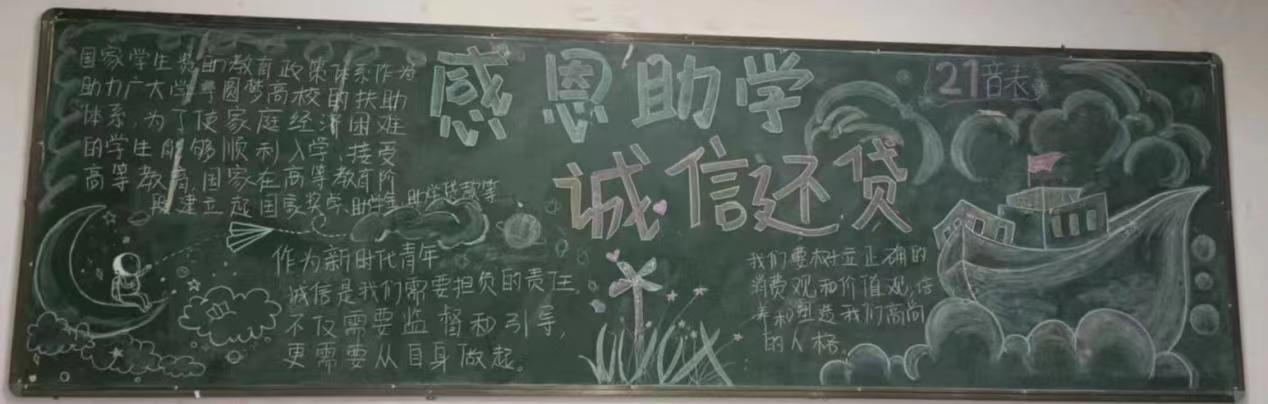 国家学生资助教育政策体系作为
助力广大学子圆梦高校的扶助
体系,为了使家庭经济困难
的学生能够顺利入学、接受
高等教育,国家在高等教育阶
段建立起国家奖学、助学金、助学贷款等
感恩助学
诚信还贷
21音表
作为新时代青年
诚信是我们需要担负的责任,
不仅需要监督和引导,
更需要从自身做起。
我们要树立正确的
消费观和价值观,培
养和塑造我们高尚
的人格。